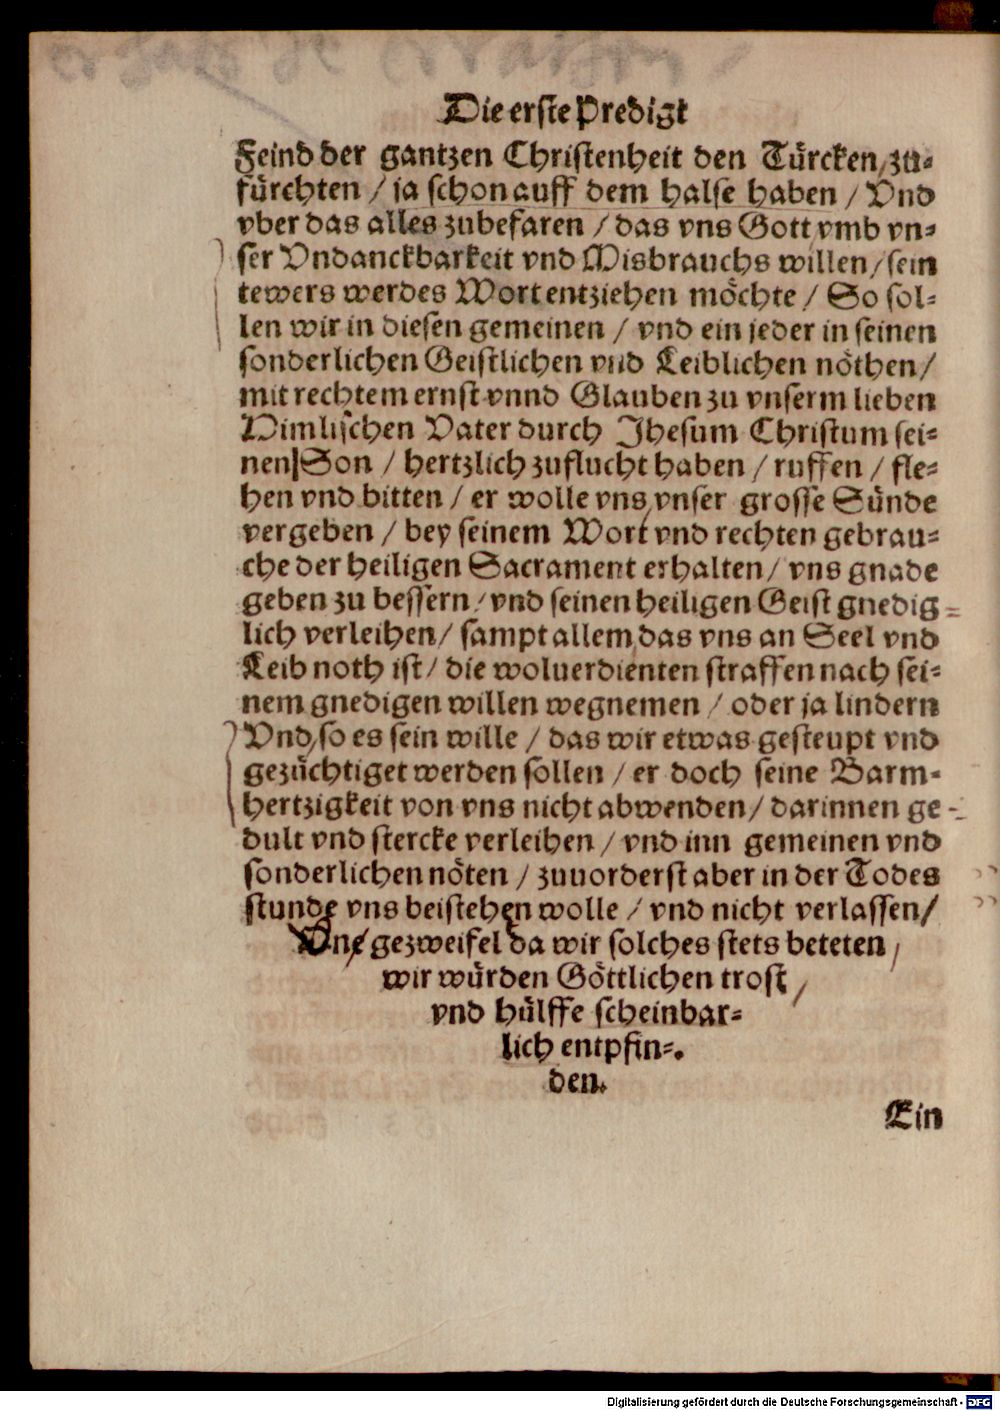 Die erste Predigt
Feind der gantzen Christenheit den Türcken/zu-
fürchten / ja schon auff dem halse haben / Vnd
vber das alles zubefaren / das vns Gott vmb vn-
ser Vndanckbarkeit vnd Misbrauchs willen/sein
tewers werdes Wort entziehen möchte / So sol-
len wir in diesen gemeinen / vnd ein jeder in seinen
sonderlichen Geistlichen vnd Leiblichen nöthen/
mit rechtem ernst vnnd Glauben zu vnserm lieben
Himlischen Vater durch Jhesum Christum sei-
nen Son / hertzlich zuflucht haben / ruffen / fle-
hen vnd bitten / er wolle vns vnser grosse Sünde
vergeben / bey seinem Wort vnd rechten gebrau-
che der heiligen Sacrament erhalten/ vns gnade
geben zu bessern/ vnd seinen heiligen Geist gnedig-
lich verleihen/ sampt allem das vns an Seel vnd
Leib noth ist/ die woluerdienten straffen nach sei-
nem gnedigen willen wegnemen / oder ja lindern
Vnd/so es sein wille / das wir etwas gesteupt vnd
gezüchtiget werden sollen / er doch seine Barm-
hertzigkeit von vns nicht abwenden/ darinnen ge-
dult vnd stercke verleihen / vnd inn gemeinen vnd
sonderlichen nöten / zuuorderst aber in der Todes
stunde vns beistehen wolle / vnd nicht verlassen/
One gezweifel da wir solches stets beteten/
wir würden Göttlichen trost/
vnd hülffe scheinbar-
lich entpfin-
den.
Ein
Digitalisierung gefördert durch die Deutsche Forschungsgemeinschaft - DFG